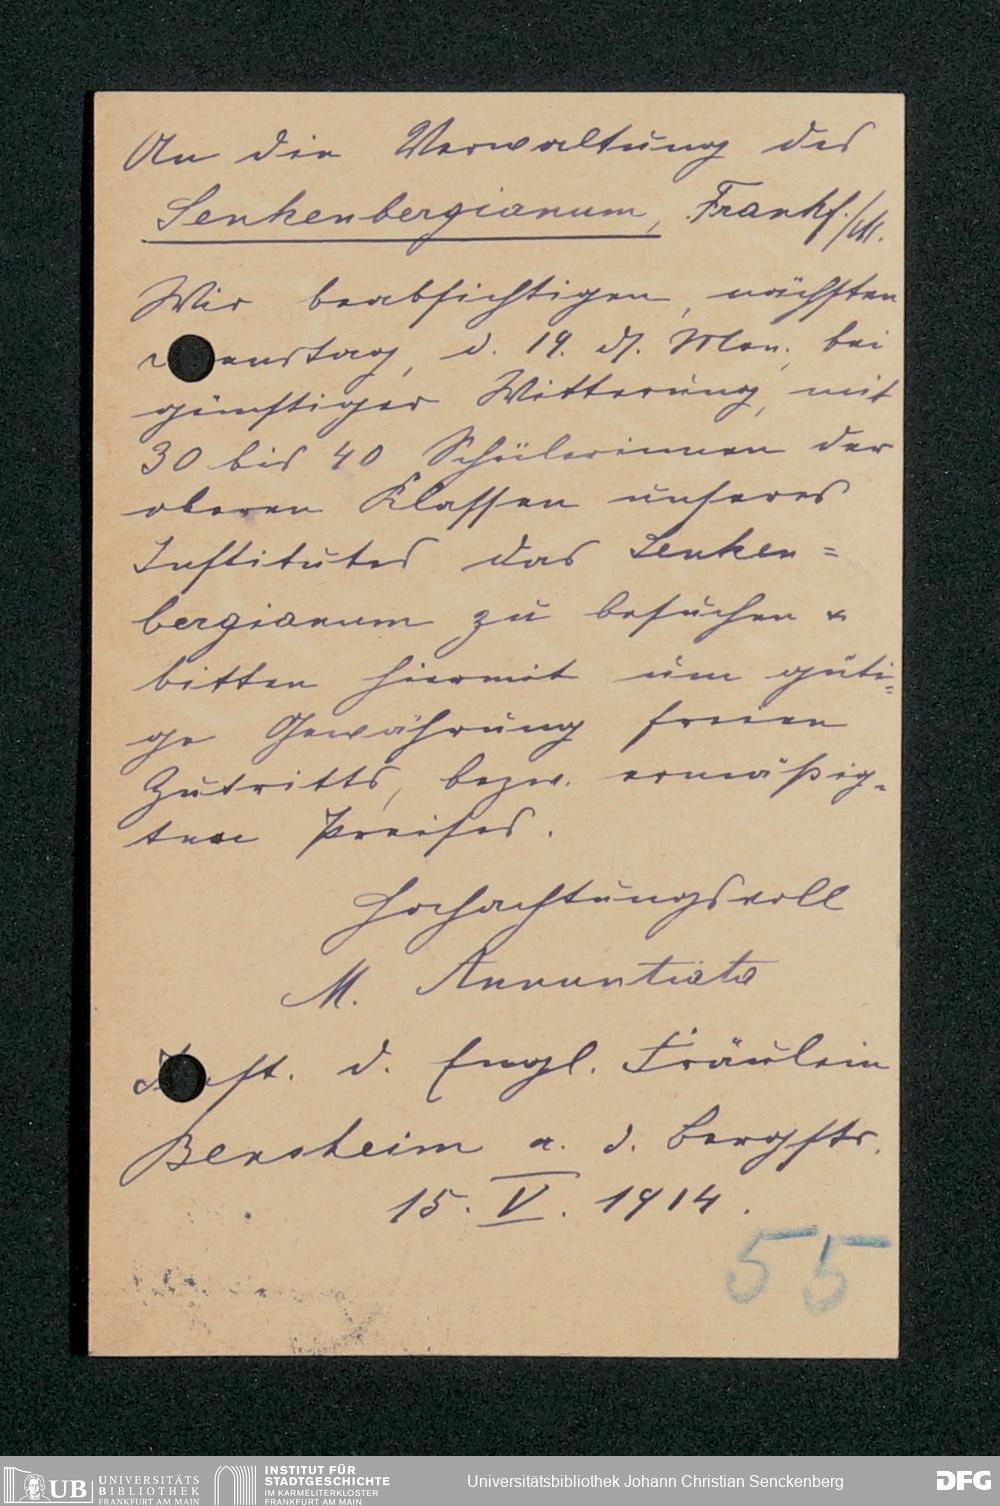 An die Verwaltung des
Senkenbergianum, Frankf./M.
Wir beabsichtigen, nächsten
Dienstag, d. 19. ds. Mon., bei
günstiger Witterung, mit
30 bis 40 Schülerinnen der
oberen Klassen unseres
Institutes das Senken=
bergianum zu besuchen &
bitten hiermit um güti=
ge Gewährung freien
Zutritts, bezw. ermäßig=
ten Preises.
Hochachtungsvoll
M. Annuntiata
Inst. d. Engl. Fräulein
Bensheim a. d. Bergstr.
15. V. 1914.
55
UB UNIVERSITÄTS
BIBLIOTHEK
FRANKFURT AM MAIN
INSTITUT FÜR
STADTGESCHICHTE
IM KARMELITERKLOSTER
FRANKFURT AM MAIN
Universitätsbibliothek Johann Christian Senckenberg
DFG